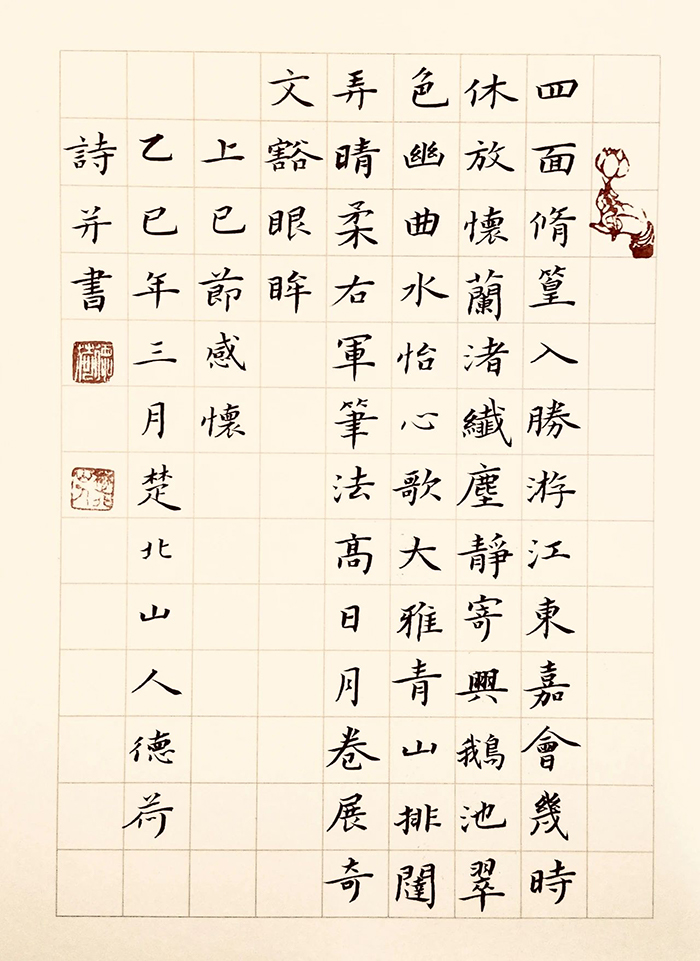 四面脩篁入勝游江東嘉會幾時
休放懷蘭渚纖塵靜寄興鵝池翠
色幽曲水怡心歌大雅青山排闥
弄晴柔右軍筆法高日月卷展奇
文豁眼眸
上巳節感懷
乙巳年三月楚北山人德荷
詩并書